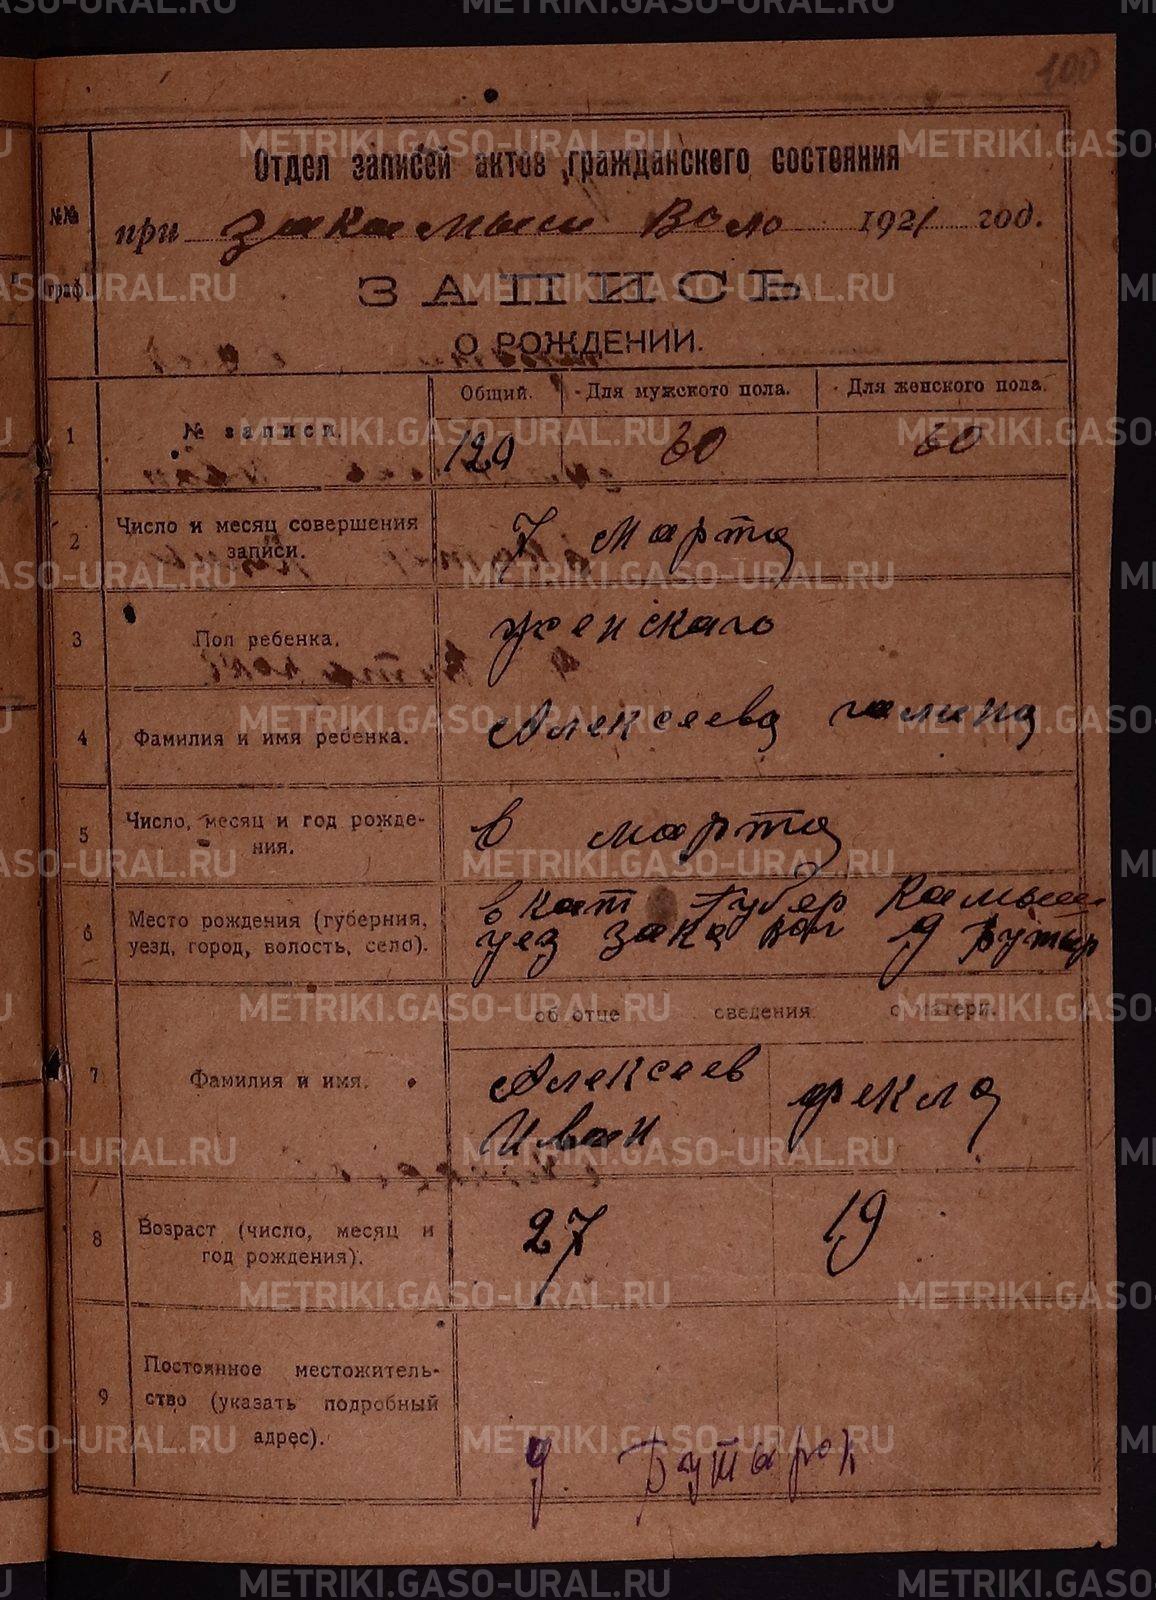 100
Отдел записей актов гражданского состояния
№№ граф.
при Закамыш Воло 1921 год.
ЗАПИСЬ
О РОЖДЕНИИ.
Общий. Для мужского пола. Для женского пола.
1 № записи. 120 60 60
2 Число и месяц совершения
записи. 7 марта
3 Пол ребенка. женскаго
4 Фамилия и имя ребенка. Алексеева галина
5 Число, месяц и год рожде-
ния. марта
6 Место рождения (губерния,
уезд, город, волость, село).
в кат губер Камыш
уез зака вол д Бутыр
об отце сведения о матери.
7 Фамилия и имя.
Алексеев фекла
Иван
8 Возраст (число, месяц и
год рождения). 27 19
9 Постоянное местожитель-
ство (указать подробный
адрес).
д. Бутырок
METRIKI.GASO-URAL.RU